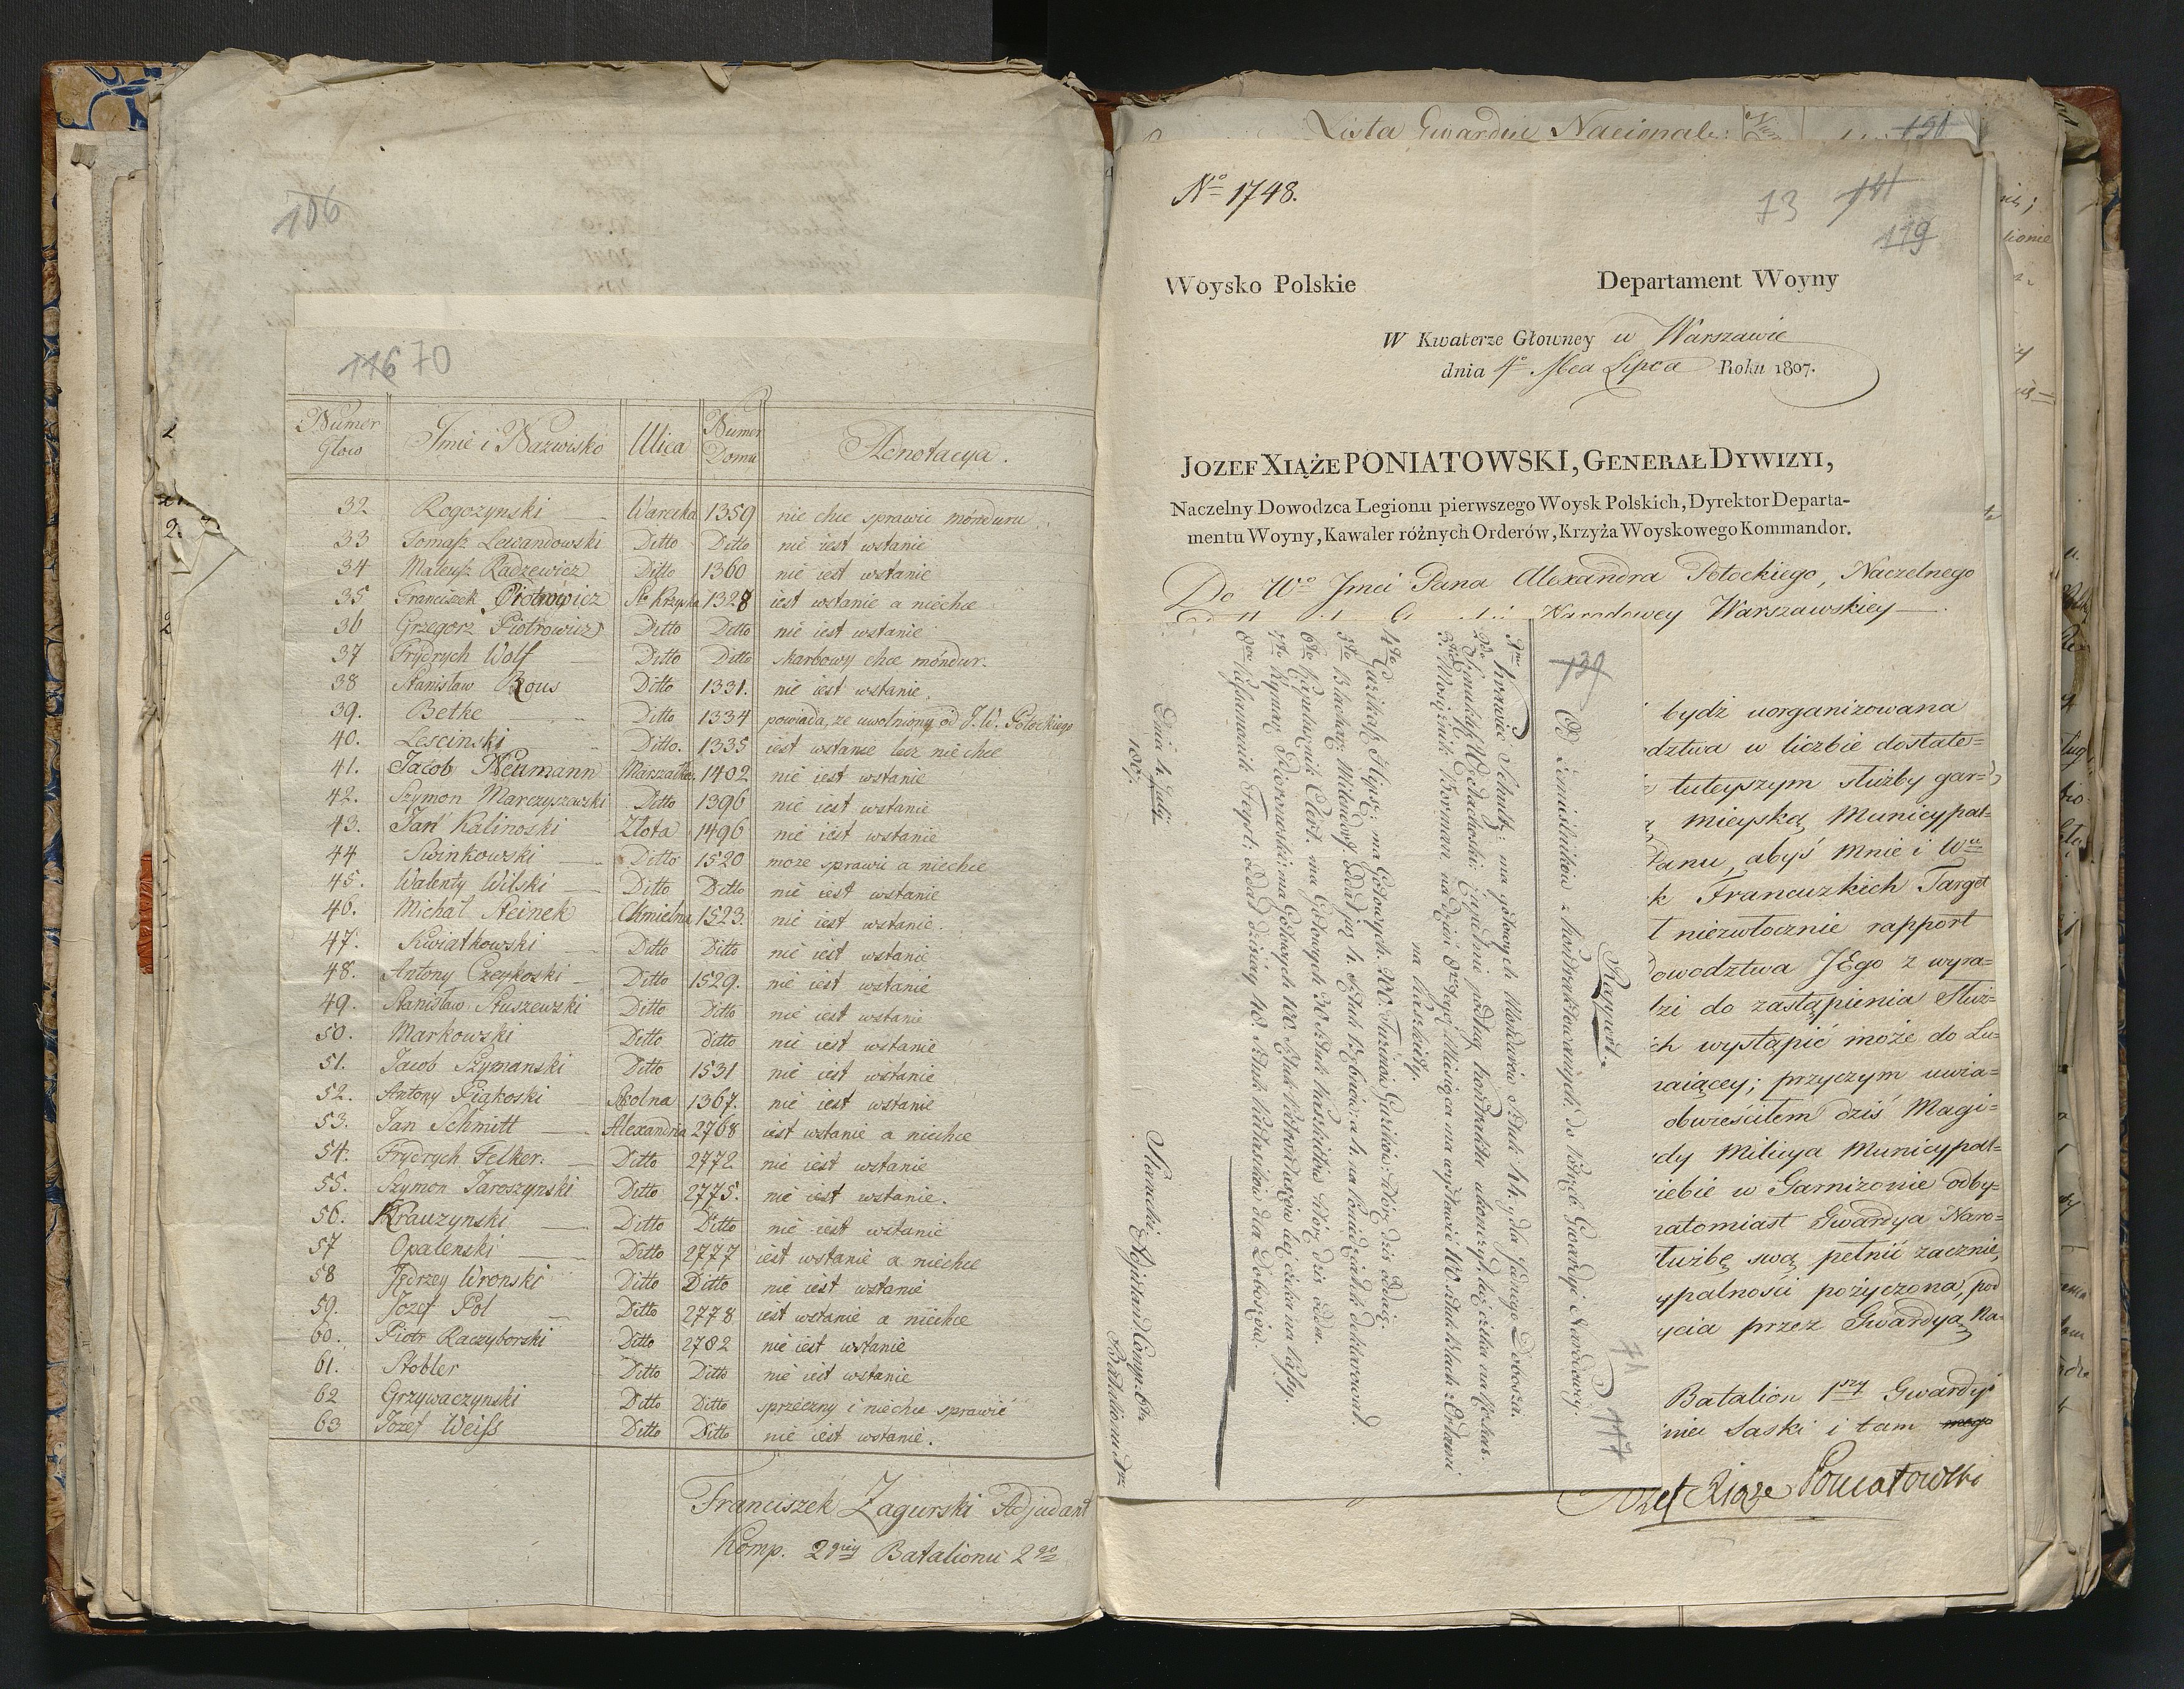 106
116 70
Numer Głow | Imie i Nazwisko | Ulica | Numer Domu | Adnotacya.
32 Rogozynski Warecka 1359 nie chce sprawic mónduru
33 Tomasz Lewandowski Ditto Ditto nie iest wstanie
34 Mateusz Radzewicz Ditto 1360 nie iest wstanie
35 Franciszek Piotrowicz Sto Krzyska 1328 iest wstanie a niechce
36 Grzegorz Piotrowicz Ditto Ditto nie iest wstanie
37 Frydrych Wolf Ditto Ditto skarbowy chce móndur.
38 Stanisław Rous Ditto 1331. nie iest wstanie.
39. Betke Ditto 1334 powiada, ze uwolniony od J. W. Potockiego
40. Lescinski Ditto. 1335 iest wstanie lecz nie chce
41. Jacob Neumann Marszałko. 1402 nie iest wstanie
42. Szymon Marczyszewski Ditto 1396 nie iest wstanie
43. Jan Kalinoski Złota 1496 nie iest wstanie
44 Swinkowski Ditto 1520 moze sprawic a niechce
45. Walenty Wilski Ditto Ditto nie iest wstanie
46. Michał Steinek Chmielna 1523. nie iest wstanie.
47. Kwiatkowski Ditto Ditto nie iest wstanie
48. Antony Czeykoski Ditto 1529. nie iest wstanie
49. Stanisław Stuszewski Ditto Ditto nie iest wstanie
50. Markowski Ditto ditto nie iest wstanie
51. Jacob Szymanski Ditto 1531 nie iest wstanie
52. Antony Piąkoski Szkolna 1367. nie iest wstanie
53. Jan Schmitt Alexandria 2768 iest wstanie a niechce
54. Frydrych Felker. Ditto 2772 nie iest wstanie
55. Szymon Jaroszynski Ditto 2775. nie iest wstanie.
56. Krauzynski Ditto Ditto nie iest wstanie
57 Opalenski Ditto 2777 iest wstanie a niechce
58 Jędrzey Wronski Ditto Ditto nie iest wstanie
59. Jozef Pol Ditto 2778 iest wstanie a niechce
60. Piotr Raczyborski Ditto 2782 nie iest wstanie
61. Stobler Ditto Ditto nie iest wstanie
62 Grzywaczynski Ditto Ditto sprzeczny i niechce sprawić
63 Jozef Weiss Ditto Ditto nie iest wstanie.
Franciszek Zagurski Adjudant
Komp. 2giey Batalionu 2go
Lista Gwardii Nacional:
121
No 1748.
73 141
119
Woysko Polskie Departament Woyny
W Kwaterze Głowney w Warszawie
dnia 4o Mca Lipca Roku 1807.
JOZEF XIĄŻE PONIATOWSKI, GENERAŁ DYWIZYI,
Naczelny Dowodzca Legionu pierwszego Woysk Polskich, Dyrektor Departa-
mentu Woyny, Kawaler różnych Orderów, Krzyża Woyskowego Kommandor.
Do Wo Jmci Pana Alexandra Potockiego, Naczelnego
Narodowey Warszawskiey
bydź uorganizowana
dztwa w liczbie dostate=
tuteyszym służby gar=
mieyską Municypal=
Panu, abyś mnie i Wu
k Francuzkich Target
t niezwłocznie rapport
owodztwa JEgo z wyra=
dzi do zastąpienia Służ=
ch wystąpić może do Lu=
naiącey; przyczym uwia=
obwieściłem dziś Magi=
dy Milicya Municypal=
iebie w Garnizonie odby=
natomiast Gwardya Naro=
służbę swą pełnić zacznie,
ypalności pożyczona, pod
ycia przez Gwardyą Na=
Batalion 1szy Gwardyi
iniec Saski i tam
Jozef Xiąże Poniatowski
71
117
139
Rapport.
Od Rzemieslników z kontraktowanych do potrzeb Gwardyi Narodowey.
1mo Krawiec Schultz; ma gotowych Mondurów Sztuk 44. y dla Jednego Dobosza.
2do Szmuklerz Wodachoski; zupełnie podług kontraktu ukonczył
3tio Mosiężnik Horman na dzień 8my tego Miesiąca ma wystawić 100. sztuk blach z Orłami
na kaszkiety.
4to Guzikarz Heysz; ma Gotowych 200. Tuzinów Guzików: które dzis oddaie.
5to Blacharz Milendorf oddał już
6to Kapelusznik Clert. ma Gotowych 30 sztuk kaszkietów które dzis odda.
7mo Rymarz
8vo
Dnia 4. July
1807.
Sieradzki Adjutand Comp: 6ta
Batalionu 1o